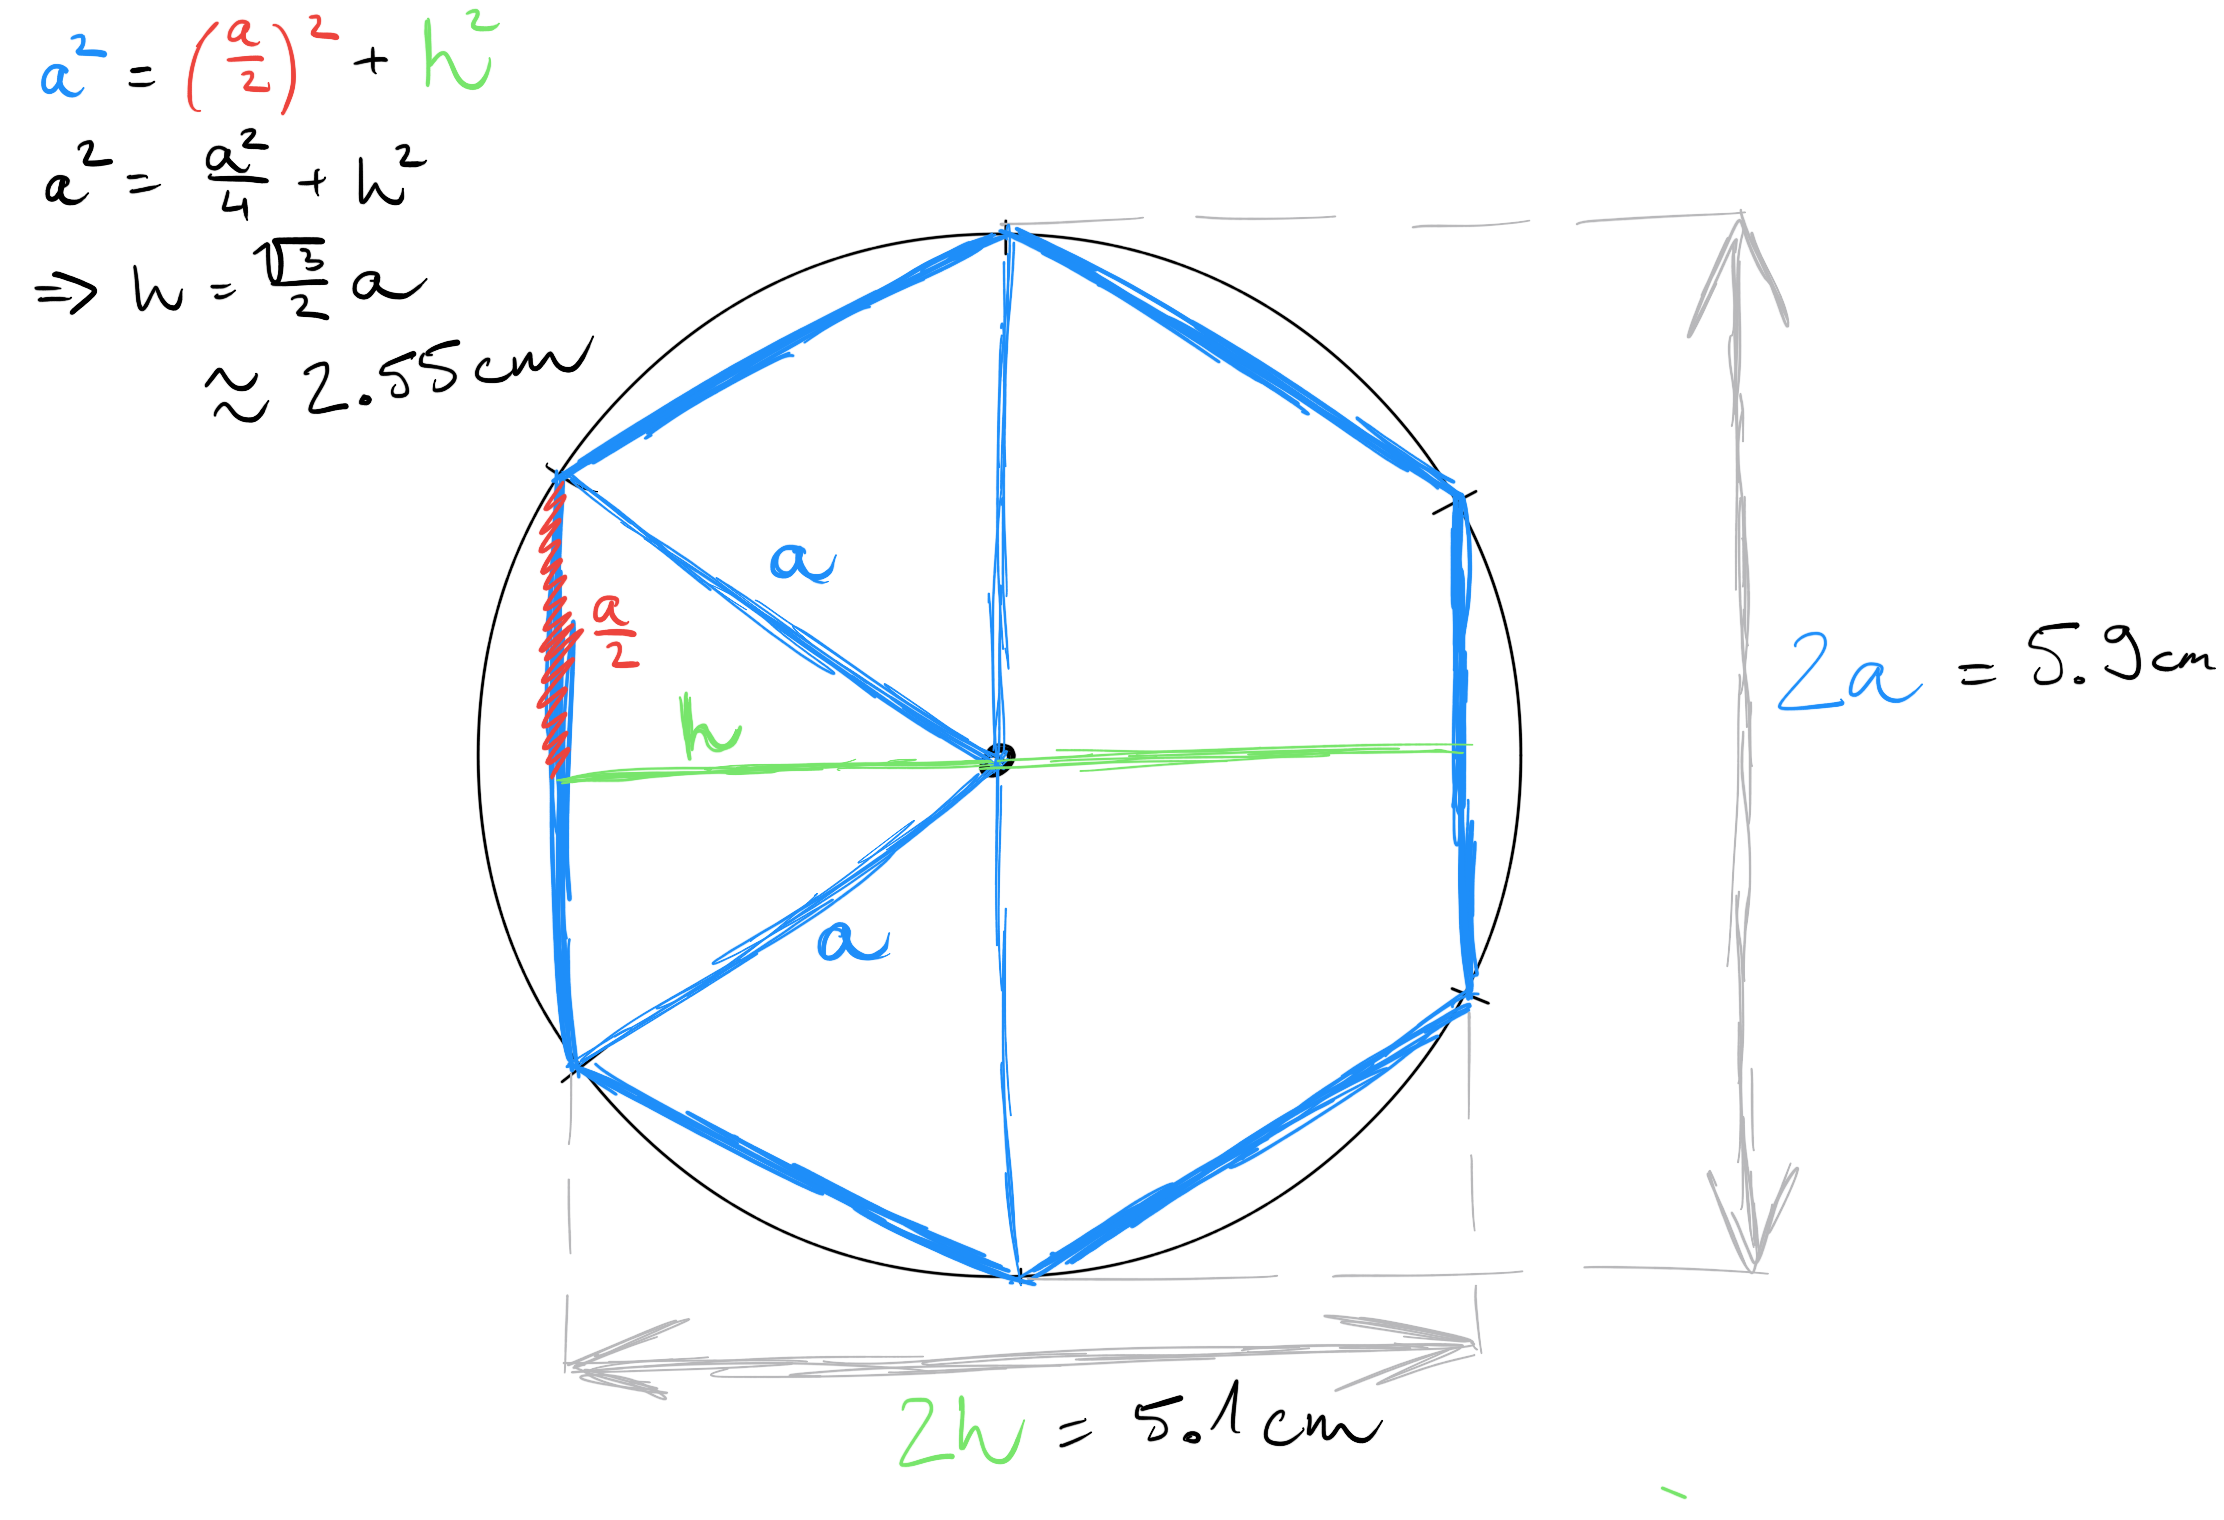 a² = (a/2)² + h²
a² = a²/4 + h²
⇒ h = √3/2 a
≈ 2.55cm
a
a/2
h
2a = 5.9cm
a
2h = 5.1cm